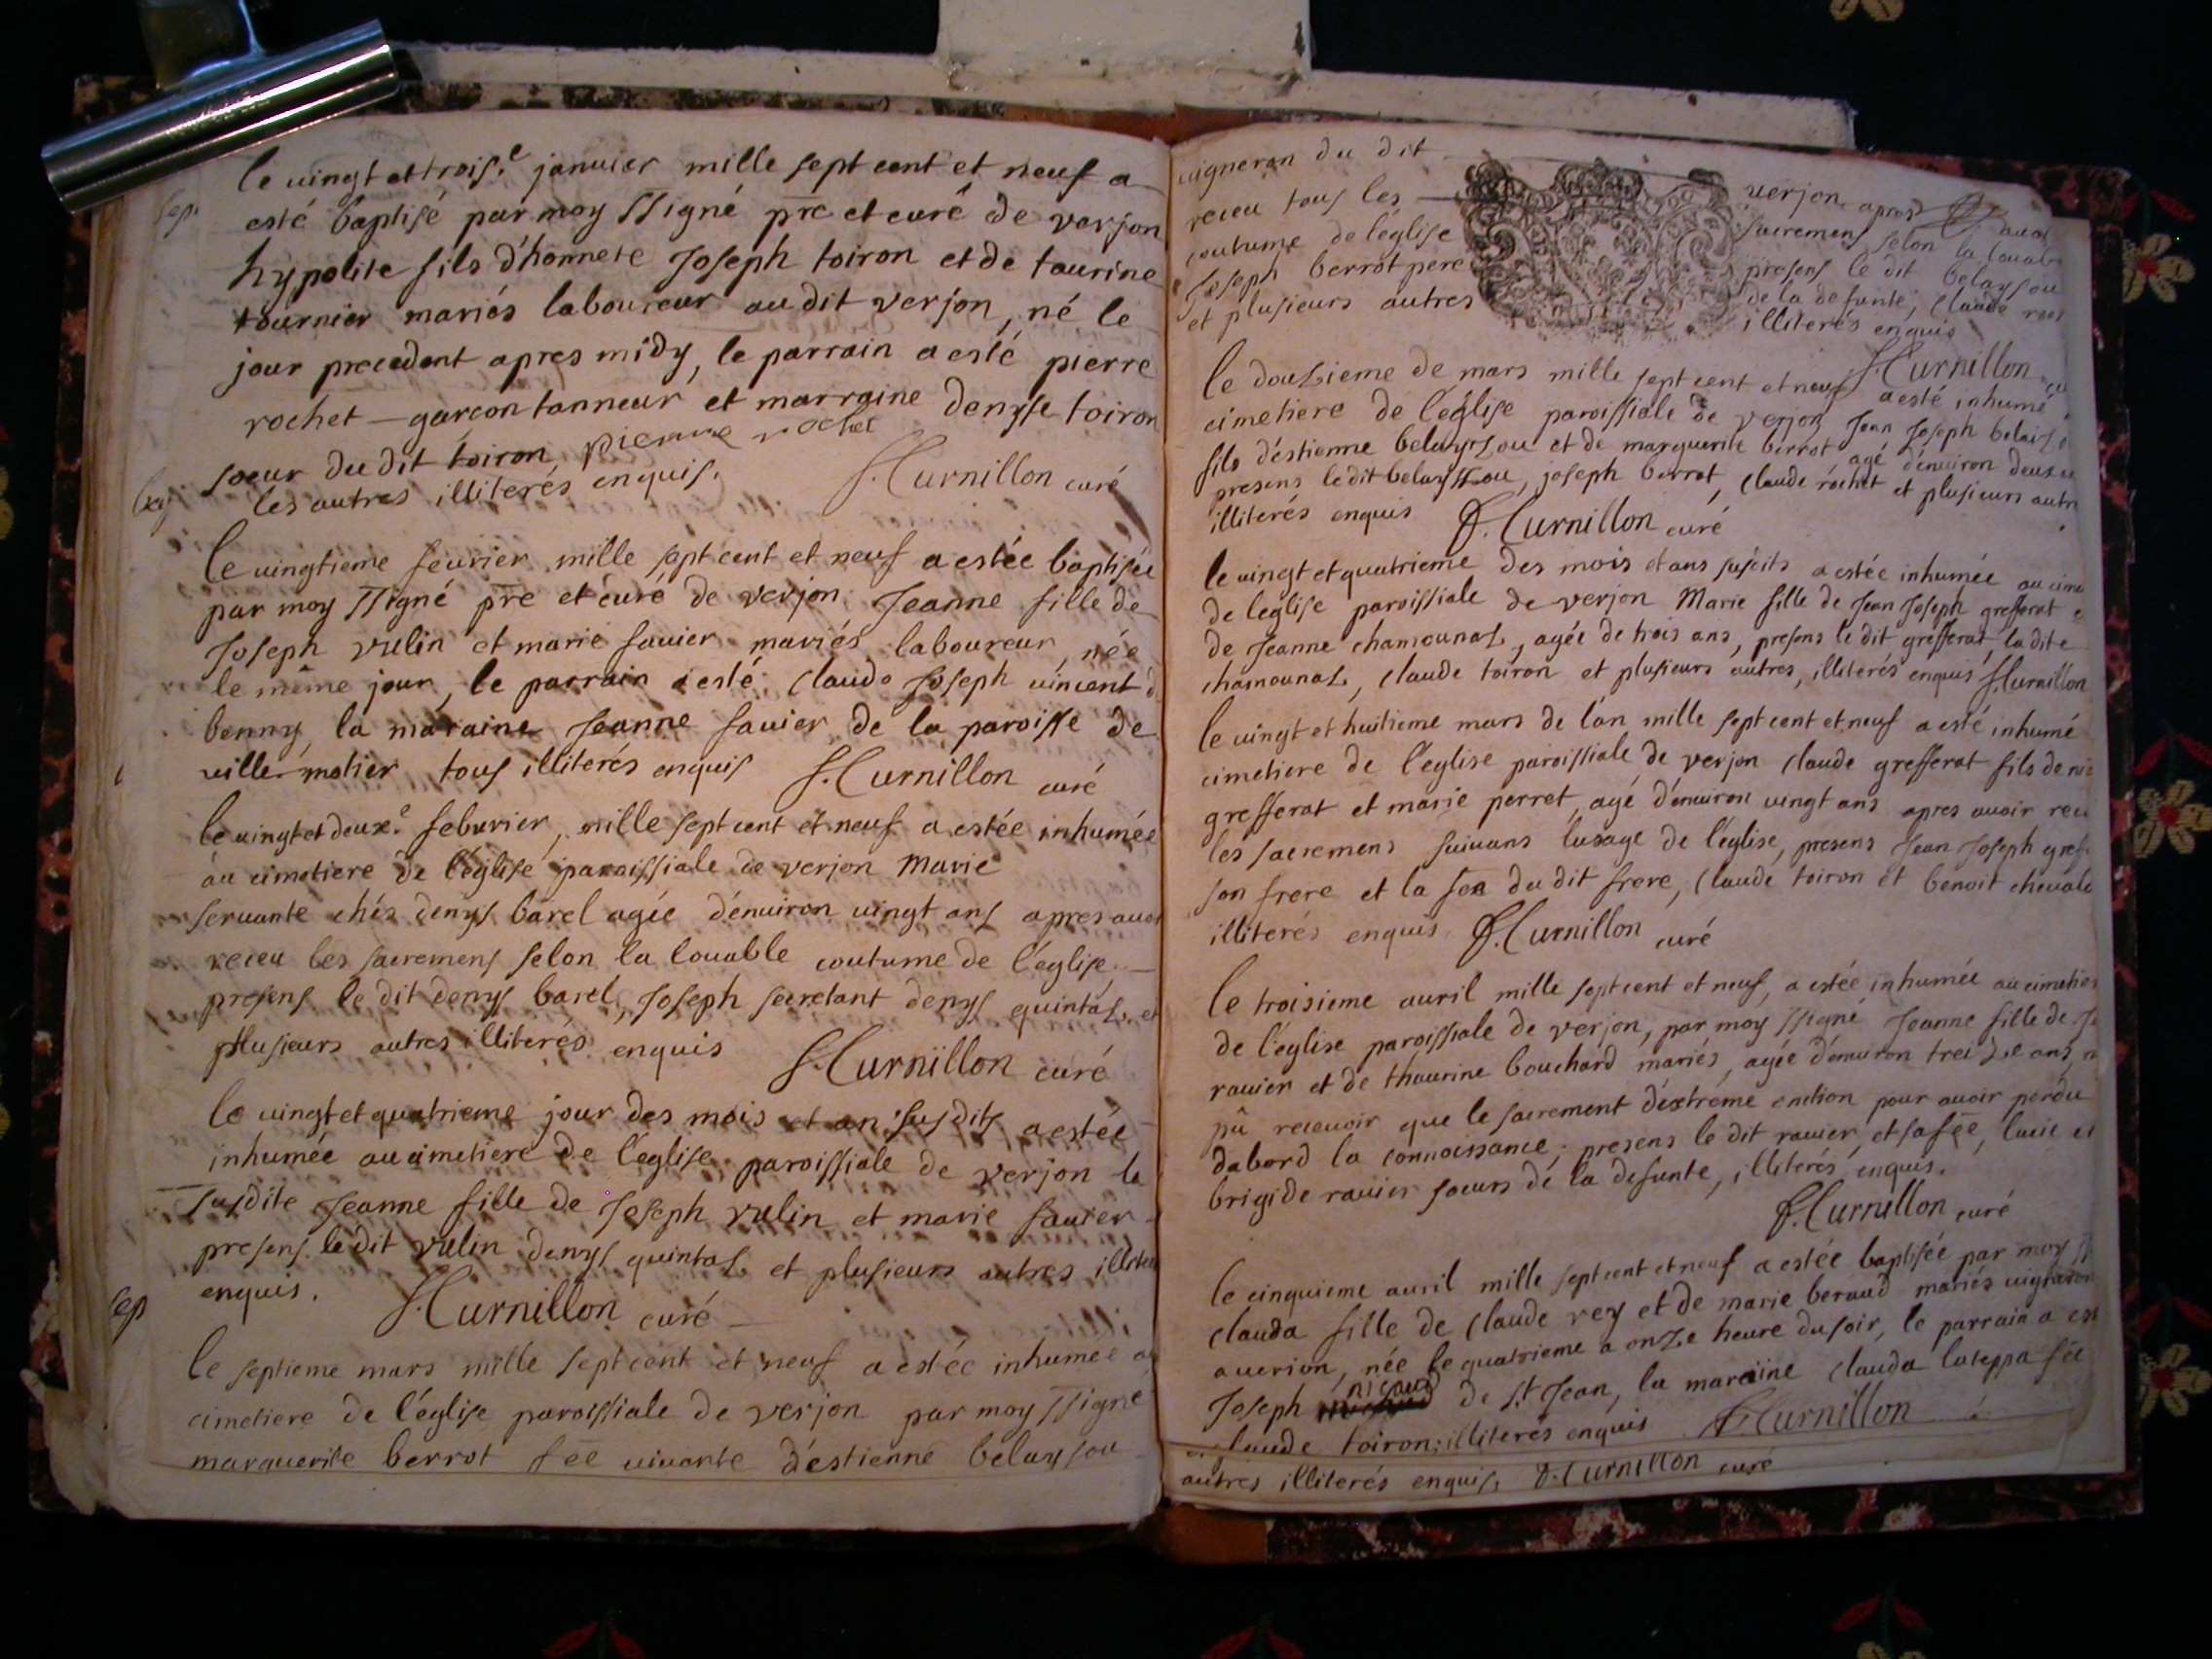 le vingt et trois.e janvier mille sept cent et neuf a
esté baptisé par moy ssigné pre et curé de verjon
hypolite fils d'honnete Joseph toiron et de taurine
tournier mariés laboureur au dit verjon, né le
jour precedent apres midy, le parrain a esté pierre
rochet garcon tanneur et marraine denyse toiron
soeur du dit toiron pierre rochet
les autres illiterés enquis. Curnillon curé
le vingtieme fevrier mille sept cent et neuf a estée baptisée
par moy ssigné pre et curé de verjon Jeanne fille de
Joseph vulin et marie favier mariés laboureur, née
le même jour, le parrain a esté Claude Joseph vincent
benny, la maraine Jeanne favier de la paroisse de
villemotier tous illiterés enquis Curnillon curé
le vingt et deux.e feburier, mille sept cent et neuf a estée inhumée
au cimetiere de l'église paroissiale de verjon Marie
servante chés denys barel agée d'environ vingt ans apres avoi
receu les sacremens selon la louable coutume de l'église,
presens le dit denys barel, Joseph secretant denys quintal, et
plusieurs autres illiterés enquis Curnillon curé
le vingt et quatrieme jour des mois et an susdits a estée
inhumée au cimetiere de l'église paroissiale de verjon la
susdite Jeanne fille de Joseph vulin et marie favier
presens le dit vulin denys quintal et plusieurs autres illiter
enquis. Curnillon curé
sep
le septieme mars mille sept cent et neuf a estée inhumée a
cimetiere de l'église paroissiale de verjon par moy ssigné
marguerite berrot fée vivante d'estienne belaysou
vigneron du dit verjon apres avoi
receu tous les sacremens selon la louable
coutume de l'église presens le dit belaysou
Joseph berrot pere de la defunte, Claude
et plusieurs autres illiterés enquis
Curnillon
le douzieme de mars mille sept cent et neuf a esté inhumé
cimetiere de l'église paroissiale de verjon Jean Joseph
fils d'éstienne belaysou et de marguerite berrot, agé d'environ deux
presens le dit belayssou, joseph berrot, Claude rochet et plusieurs autr
illiterés enquis Curnillon curé
le vingt et quatrieme des mois et ans susdits a estée inhumée au cime
de leglise paroissiale de verjon Marie fille de Jean Joseph grefferat
de Jeanne chamounal, agée de trois ans, presens le dit grefferat, la dite
chamounal, Claude toiron et plusieurs autres, illiterés enquis Curnillon
le vingt et huitieme mars de l'an mille sept cent et neuf a esté inhumé
cimetiere de l'eglise paroissiale de verjon Claude grefferat fils de
grefferat et marie perret, agé d'environ vingt ans apres avoir receu
les sacremens suivans lusage de l'église, presens Jean Joseph gref
son frere et la du dit frere, Claude toiron et benoit
illiterés enquis Curnillon curé
le troisieme avril mille sept cent et neuf, a estée inhumée au cimetier
de l'église paroissiale de verjon, par moy ssigné Jeanne fille de
ravier et de thaurine bouchard mariés, agée d'environ treize ans,
pû recevoir que le sacrement d'éxtréme onction pour avoir perdu
dabord la connoissance; presens le dit ravier et sa fée, lucie et
brigide ravier soeurs de la defunte, illiterés enquis.
Curnillon curé
le cinquieme avril mille sept cent et neuf a estée baptisée par moy
clauda fille de Claude rey et de marie beraud mariés vigneron
a verion, née le quatrieme a onze heure du soir, le parrain a est
Joseph nicaud de st Jean, la maraiine Clauda lateppa fée
Claude toiron; illiterés enquis Curnillon
autres illiterés enquis, Curnillon curé